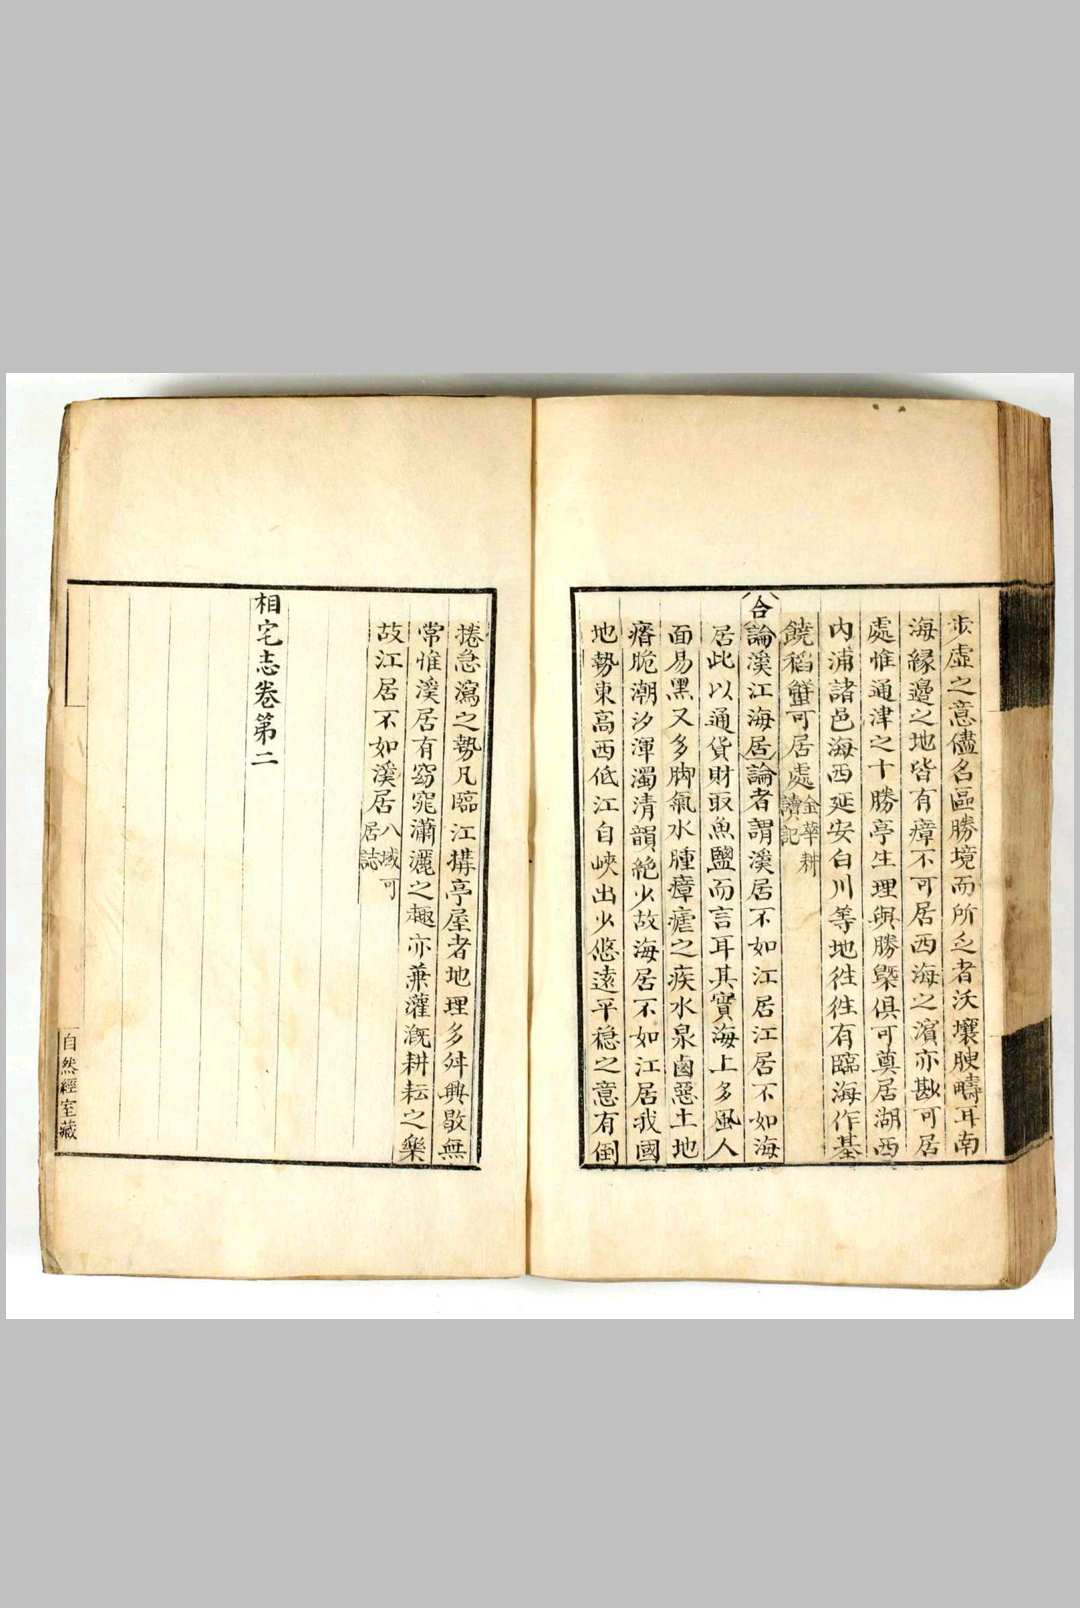 步虛之意儘名區勝境而所乏者沃壤腴疇耳南
海緣邊之地皆有瘴不可居西海之濱亦尠可居
處惟通津之十勝亭生理與勝槩俱可奠居湖西
內浦諸邑海西延安白川等地徃徃有臨海作基
饒稻蟹可居處金華耕讀記
合論溪江海居論者謂溪居不如江居江居不如海
居此以通貨財取魚鹽而言耳其實海上多風人
面易黑又多脚氣水腫瘴瘧之疾水泉鹵惡土地
瘠脆潮汐渾濁清韻絶少故海居不如江居我國
地勢東高西低江自峽出少悠遠平穩之意有倒
捲急瀉之勢凡臨江搆亭屋者地理多舛興歇無
常惟溪居有窈窕瀟灑之趣亦兼灌漑耕耘之樂
故江居不如溪居八域可居誌
相宅志卷第二
自然經室藏